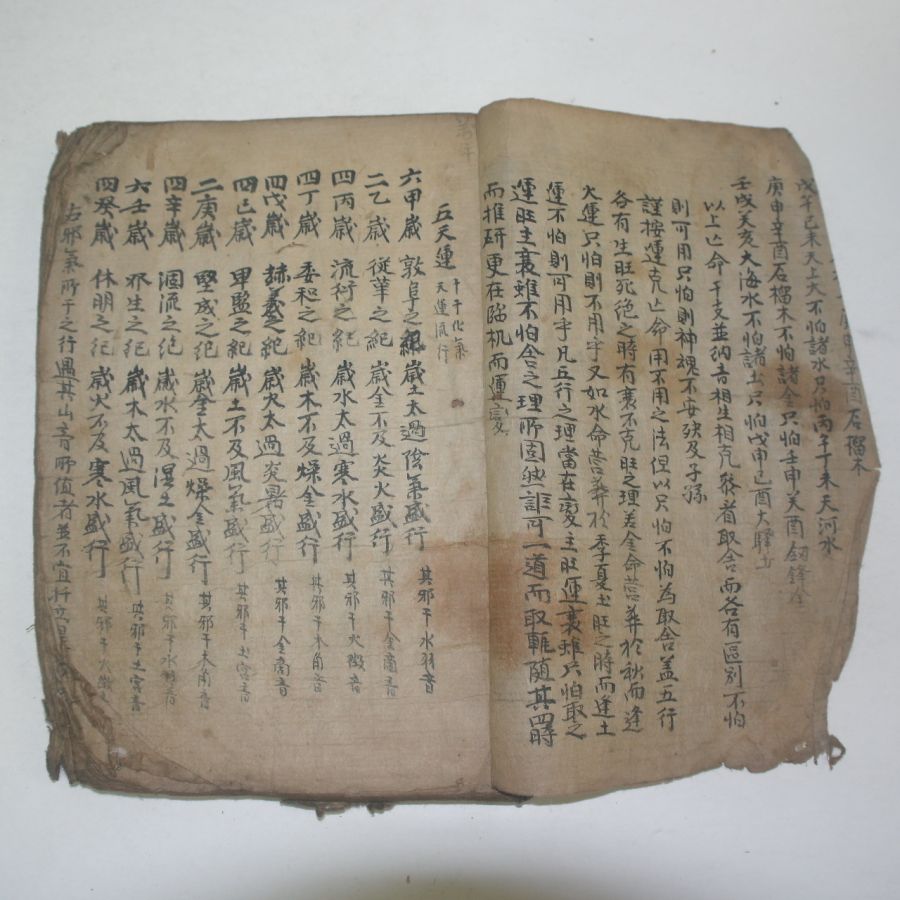 庚申辛酉石榴木
戊午己未天上火不怕諸水只怕丙午丁未天河水
庚申辛酉石榴木不怕諸金只怕壬申癸酉釰鋒金
壬戌癸亥大海水不怕諸土只怕戊申己酉大驛土
以上亡命干支並納音相生相克發着取舍而各有區別不怕
則可用只怕則神魂不安殃及子孫
謹按運克亡命用不用之法但以只怕不怕為取舍盖五行
各有生旺死絶之時有衰不克旺之理若金命營葬於秋而逢
火運只怕則不用乎又如水命營葬於季夏土旺之時而逢土
運不怕則可用乎凡五行之理當在變主旺運衰雖只怕取之
運旺主衰雖不怕舍之理所固然誰可一道而取軏随其四時
而推研更在臨机而運變
五天運 十干化氣 天運流行
六甲歲 敦阜之紀 歲土太過陰氣盛行 其邪干水羽音
二乙歲 從革之紀 歲金不及炎火盛行 其邪干金商音
四丙歲 流衍之紀 歲水太過寒水盛行 其邪干火徵音
四丁歲 委和之紀 歲木不及燥金盛行 其邪干木角音
四戊歲 赫羲之紀 歲火太過炎暑盛行 其邪干金商音
四己歲 卑監之紀 歲土不及風氣盛行 其邪干土宮音
二庚歲 堅成之紀 歲金太過燥金盛行 其邪干木角音
四辛歲 涸流之紀 歲水不及濕土盛行 其邪干水羽音
六壬歲 邪生之紀 歲木太過風氣盛行 其邪干土宮音
四癸歲 休明之紀 歲火不及寒水盛行 其邪干火徵
右邪氣所干之行遇其山音所值者並不宜